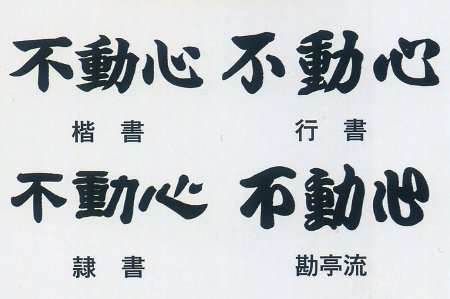 不動心 不動心
楷書 行書
不動心 不動心
隷書 勘亭流